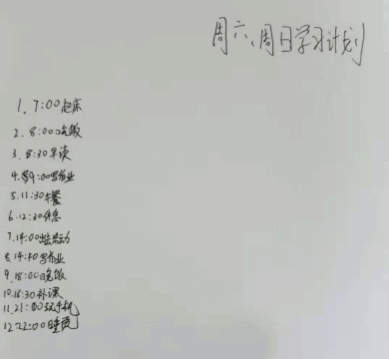 周六、周日学习计划
1. 7:00起床
2. 8:00吃饭
3. 8:30早读
4. 9:00写作业
5. 11:30午餐
6. 12:30休息
7. 14:00
8. 14:40写作业
9. 18:00晚饭
10. 18:30补课
11. 21:00玩手机
12. 22:00睡觉